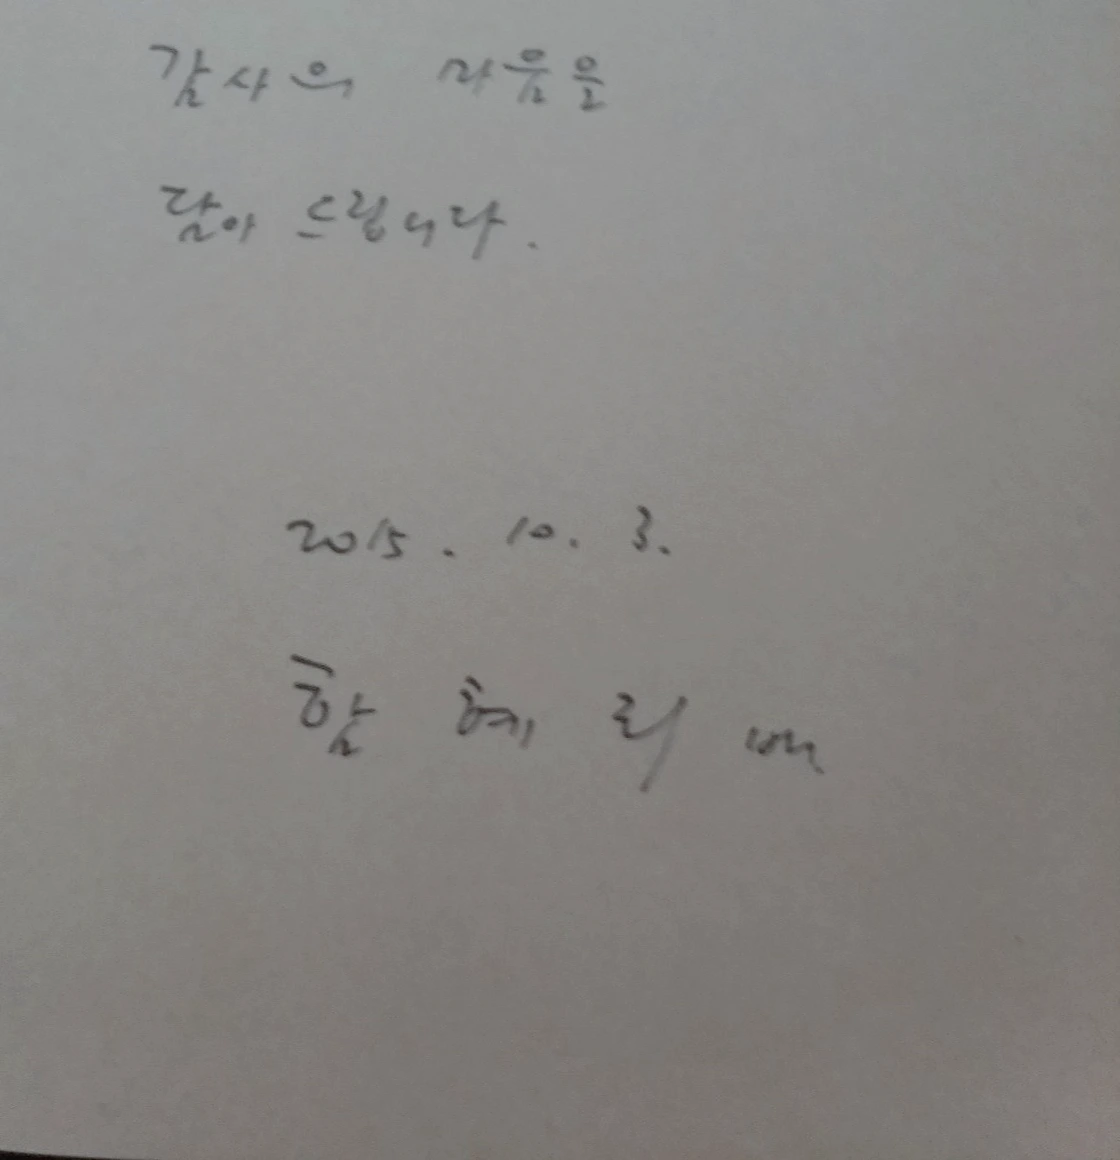 감사의 마음을
담아 드립니다.
2015. 10. 3.
함 혜 리